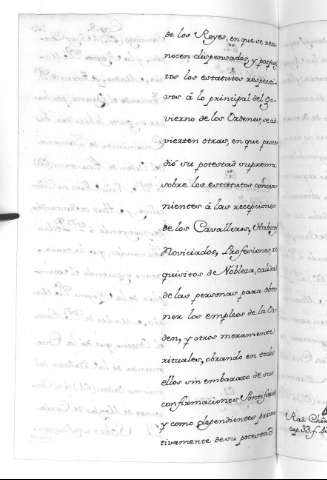 de los Reyes, en que se reco-
nocen dispensados, y pospues-
tos los estatutos respecti-
vos à lo principal del Go-
vierno de las Ordenes, se ad-
vierten otras, en que prece-
dió su potestad suprema
sobre los estatutos concer-
nientes à las recepciones
de los Cavalleros, Habitos
Noviciados, Profesiones, re-
quisitos de Nobleza, calidad
de las personas para obte-
ner los empleos de la Or-
den, y otros meramente
rituales, obrando en todo
ellos sin embarazo de sus
confirmaciones Pontificias
y como dependientes priva-
tivamente de su potestad